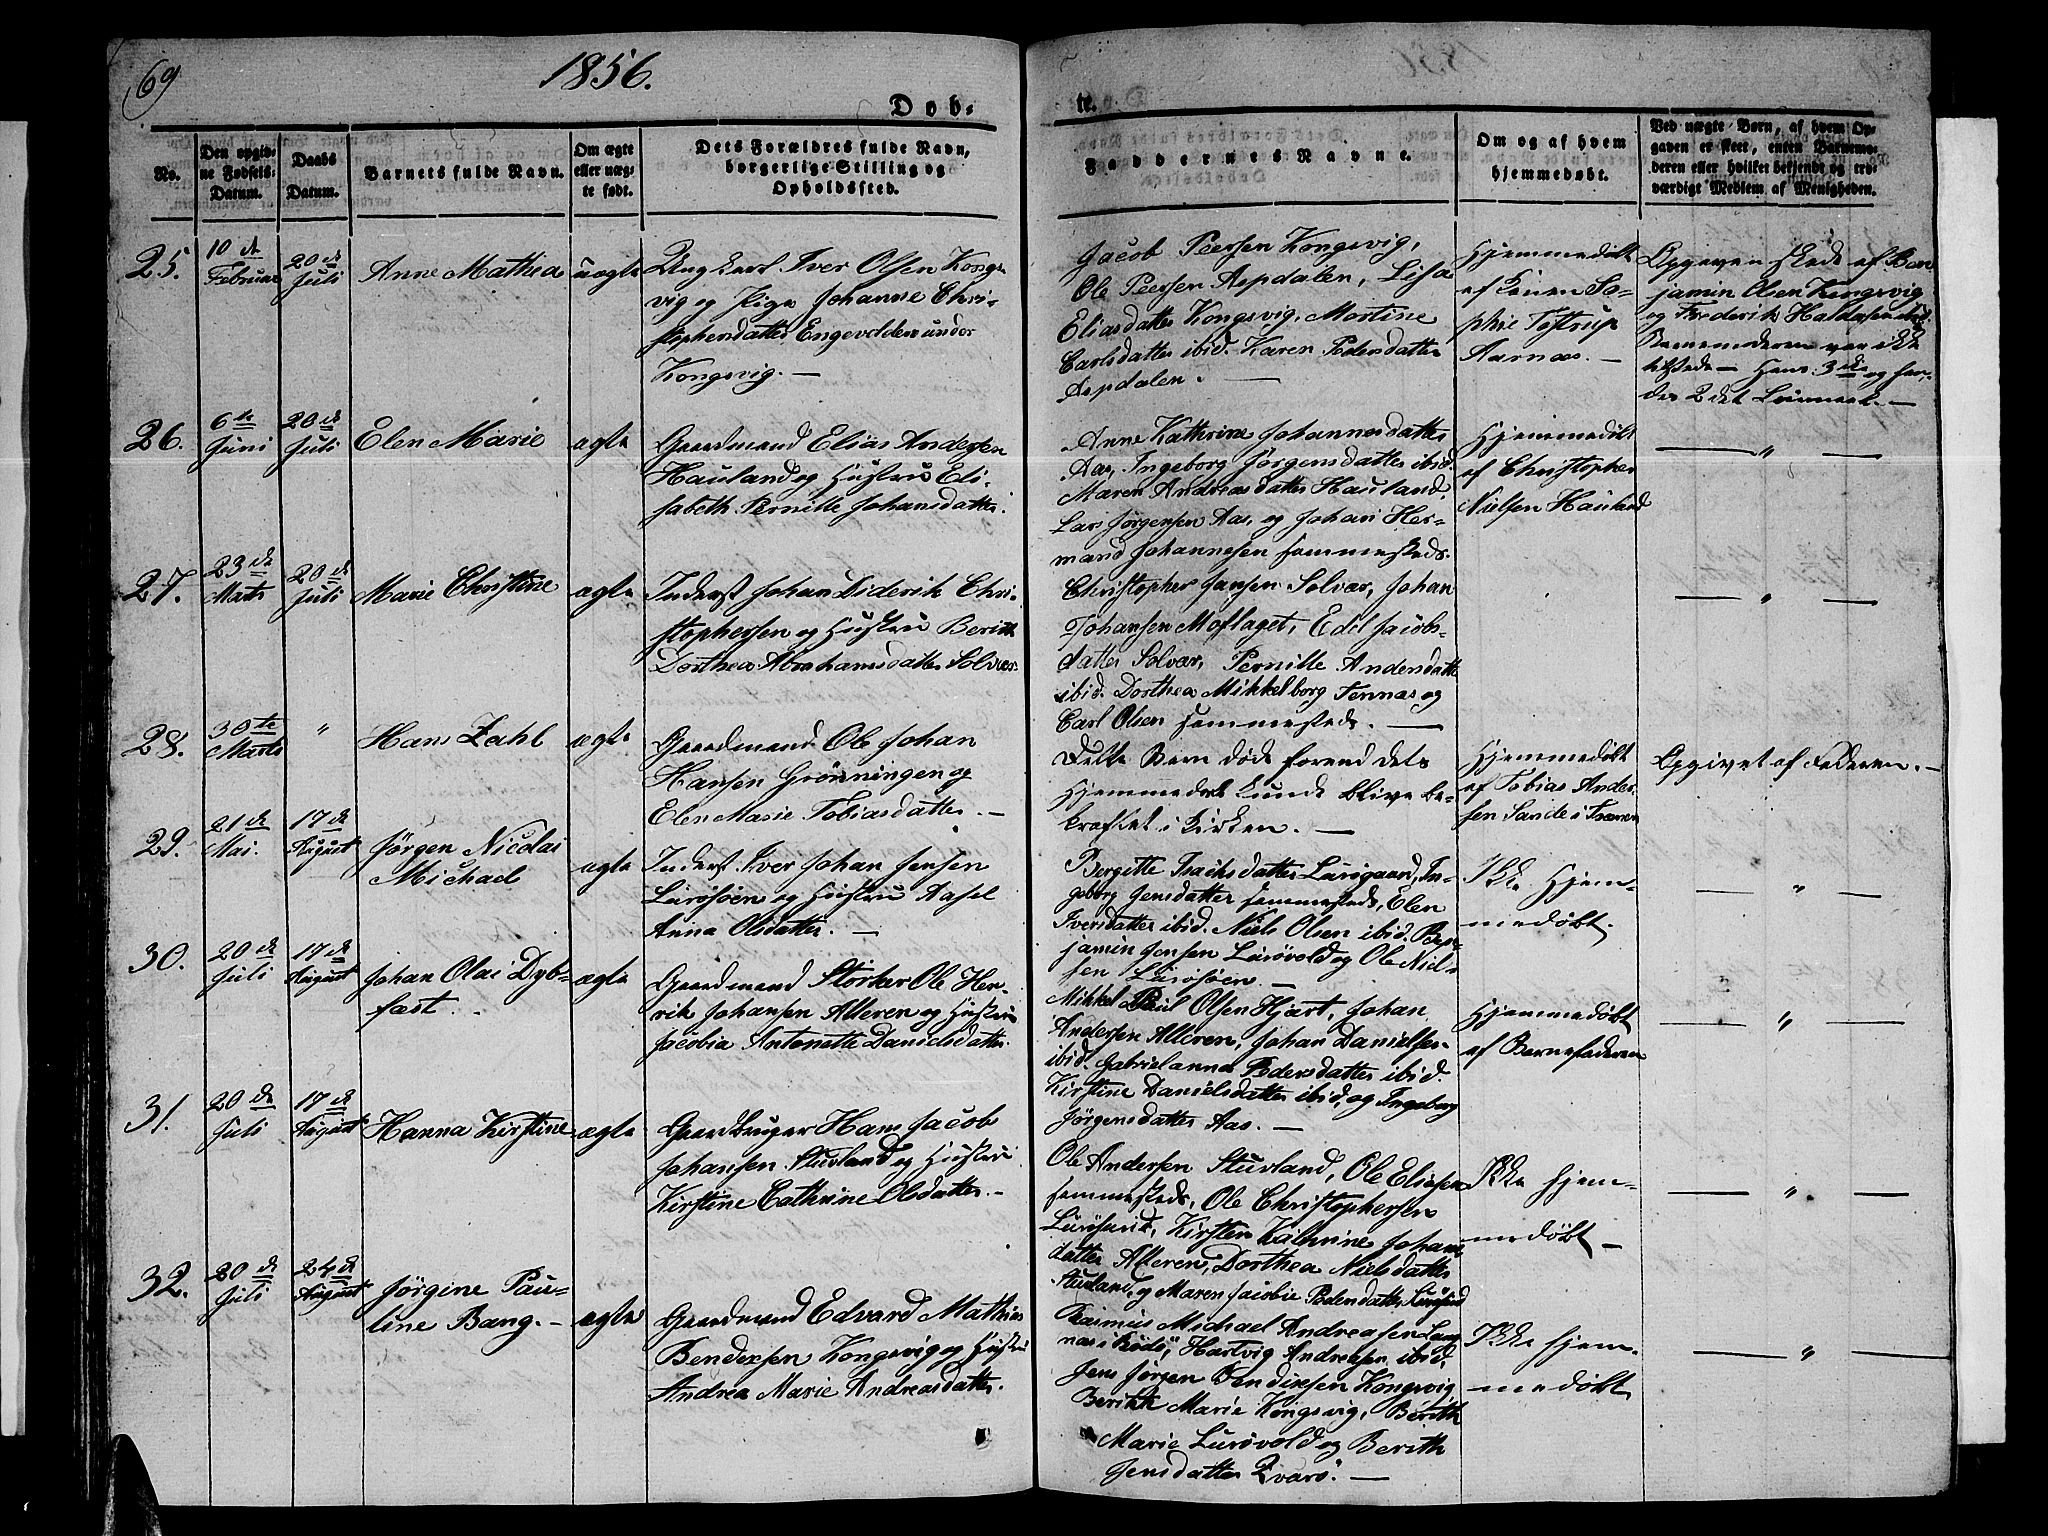 69
1856.
Dob-
te.
No.
Den opgivne Fødsels-Datum.
Daabs Datum.
Barnets fulde Navn.
Om ægte eller uægte født.
Dets Forældres fulde Navn, borgerlige Stilling og Opholdssted.
Faddernes Navne.
Om og af hvem hjemmedøbt.
Ved uægte Børn, af hvem Opgaven er skeet, enten Barnemoderen eller hvilket bekjendt og troværdigt Medlem af Menigheden.
25.
10de Februar
20de Juli
Anne Mathea
uægte
Ungkarl Iver Olsen Kongs-
vig og Pige Johanne Chri-
stophersdatter Engevolden under
Kongsvig. —
Jacob Peersen Kongsvig,
Ole Peersen Aspdalen, Lisa
Eliasdatter Kongsvig, Martine
Carlsdatter ibid. Karen Pedersdatter
Aspdalen. —
Hjemmedøbt
af Sø-
phie Toftrup
Aarnæs. —
Opgaven skede af Ben-
jamin Olsen Kongsvig
og Frederik
Barnemoderen var ikke
tilstede — Hans 3die og hen-
des 2det Leiermaal. —
26.
6te Juni
20de Juli
Elen Marie
ægte
Gaardmand Elias Andersen
Hauland og Hustru Eli-
sabeth Pernille Johansdatter.
Anne Kathrine Johannesdatter
Aas, Ingeborg Jørgensdatter ibid.
Maren Andreasdatter Hauland,
Lars Jørgensen Aas, og Johan Her-
mand Johannesen sammesteds.
Hjemmedøbt
af Christopher
Nielsen Hauland
— " —
27.
23de Marts
20de Juli
Marie Christine
ægte
Inderst Johan Diderik Chri-
stophersen og Hustru Berith
Dorthea Abrahamsdatter Solvær.
Christopher Jansen Solvær, Johan
Johansen Moflaget, Edel Jacobs-
datter Solvær, Pernille Andersdatter
ibid. Dorthea Mikkelborg Tennæs og
Carl Olsen sammesteds. —
— " —
28.
30te Marts
"
Hans Zahl
ægte
Gaardmand Ole Johan
Hansen Grønningen og
Elen Marie Tobiasdatter. —
Dette Barn døde forend dets
Hjemmedaab kunde blive be-
kræftet i Kirken. —
Hjemmedøbt
af Tobias Ander-
sen Sande i Trænen
Opgivet af Faderen. —
29.
21de Mai.
17de August
Jørgen Nicolai
Michael
ægte
Inderst Iver Johan Jensen
Lurøsøen og Hustru Aasel
Anna Olsdatter. —
Bergitte Isachsdatter Lurøgaard, In-
geborg Jensdatter sammesteds, Elen
Iversdatter ibid. Niels Olsen ibid. Ben-
jamin Jensen Lurøvold og Ole Niel-
sen Lurøsøen. —
Ikke Hjem-
medøbt.
— " —
30.
20de Juli
17de August
Johan Olai Dyb-
fæst.
ægte
Gaardmand Størker Ole Hen-
rik Johansen Alteren og Hustru
Jacobia Antonette Danielsdatter.
Mikkel Paul Olsen Hjart, Johan
Andersen Alteren, Johan Danielsen
ibid. Gabriel anna Pedersdatter ibid.
Kirstine Danielsdatter ibid, og Ingeborg
Jørgensdatter Aas. —
Hjemmedøbt
af Barnefaderen
— " —
31.
20de Juli
17de August
Hanna Kirstine
ægte
Gaardbruger Hans Jacob
Johansen Stuvland og Hustru
Kirstine Cathrine Olsdatter. —
Ole Andersen Stuvland, Ole Eliasen
sammesteds, Ole Christophersen
Kirsten Kathrine Johans-
datter Alteren, Dorthea Nielsdatter
Stuvland, og Maren Jacobie Pedersdatter
Ikke hjem-
medøbt —
— " —
32.
20de Juli
24de August
Jørgine Pau-
line Bang. —
ægte
Gaardmand Edvard Mathias
Bendixsen Kongsvig og Hustru
Andrea Marie Andreasdatter.
Rasmus Michael Andreasen Lang-
næs i Rødø, Hartvig Andreasen ibid,
Jens Jørgen Bendixsen Kongsvig
Berith Marie Kongsvig, Berith
Marie Lurøvold og Berith
Jensdatter Qvarø. —
Ikke hjem-
medøbt
— " —